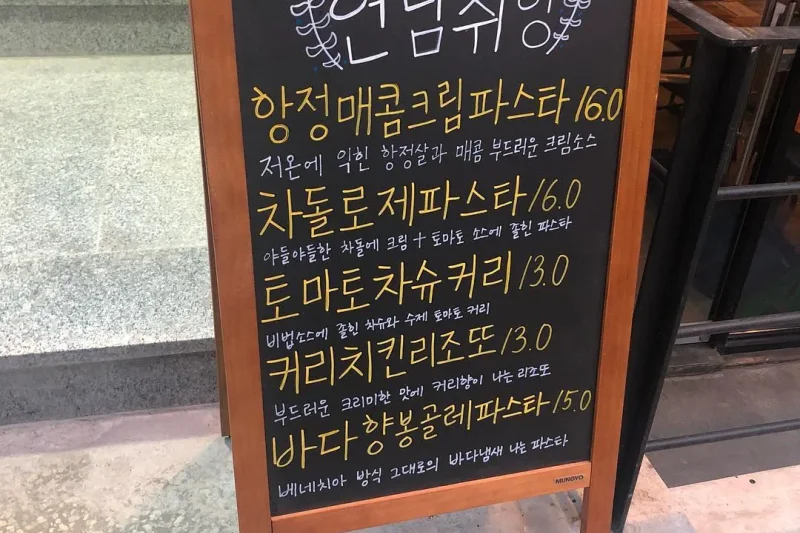 연남취향
항정매콤크림파스타 16.0
저온에 익힌 항정살과 매콤 부드러운 크림소스
차돌로제파스타 16.0
야들야들한 차돌에 크림+토마토 소스에 졸힌 파스타
토마토차슈커리 13.0
비법소스에 졸힌 차슈와 수제 토마토 커리
커리치킨리조또 13.0
부드러운 크리미한 맛에 커리향이 나는 리조또
바다향봉골레파스타 15.0
베네치아 방식 그대로의 바다냄새 나는 파스타
MUNGYO